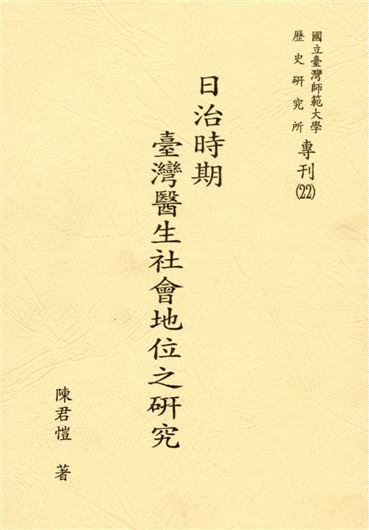 國立臺灣師範大學
歷史研究所
專刊(22)
日治時期
臺灣醫生社會地位之研究
陳君愷 著